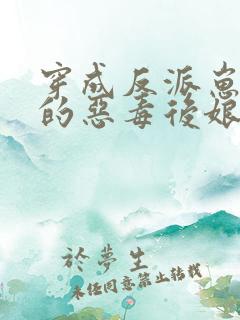 穿成反派崽
的惡毒後娘
於夢生
未经同意禁止转载